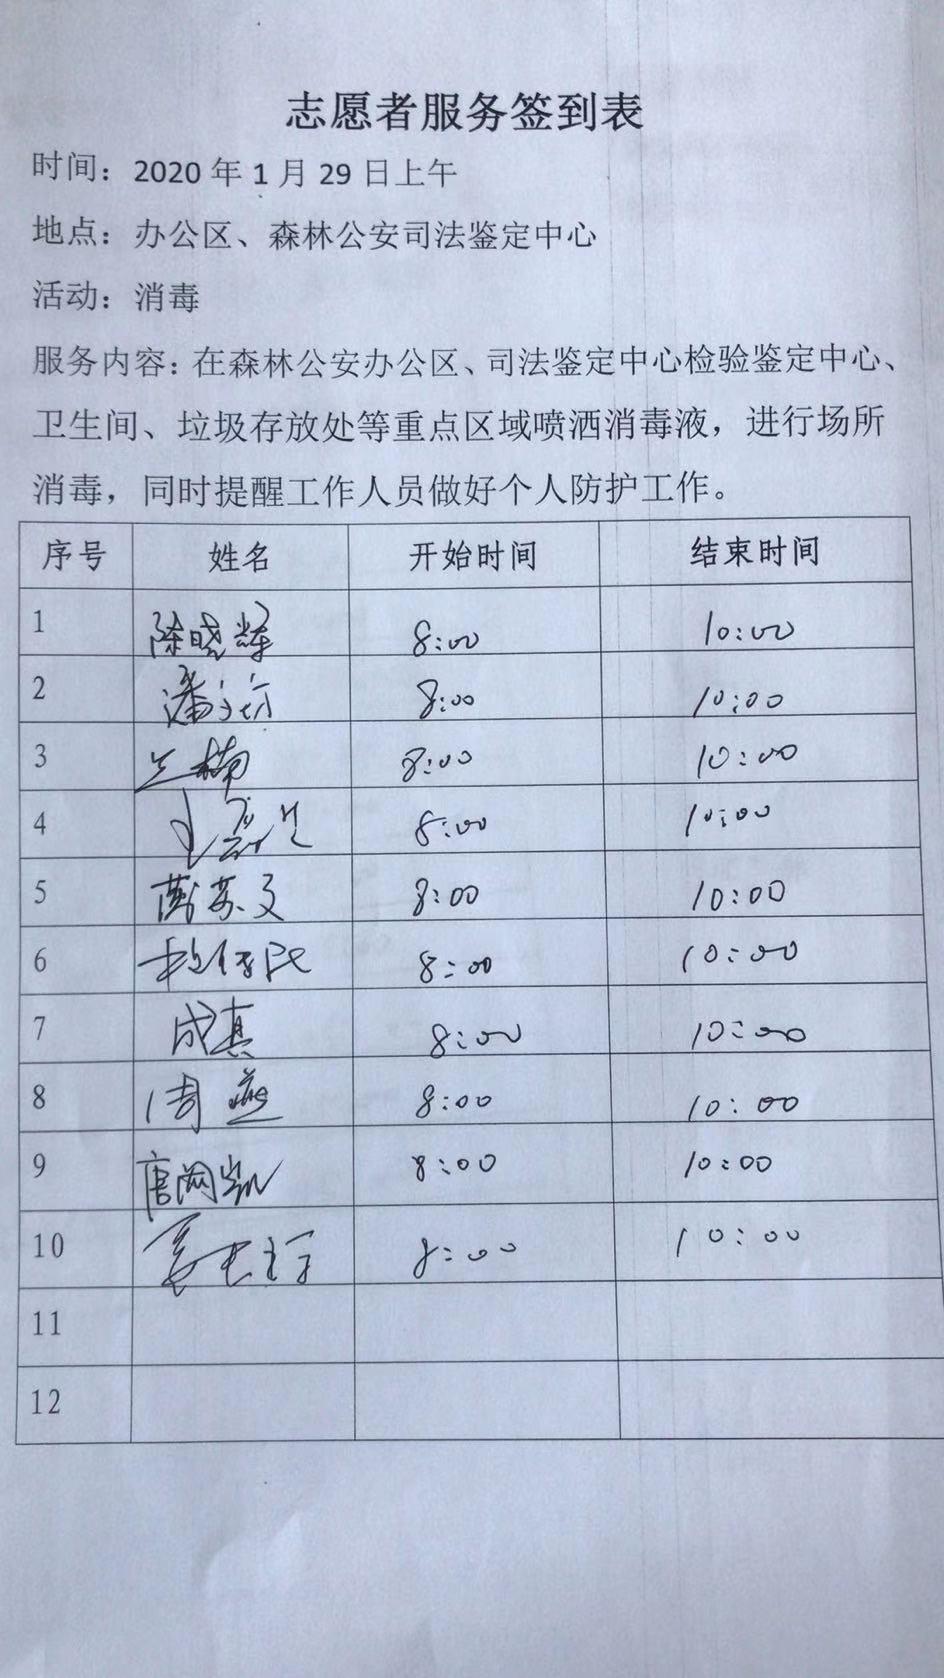 志愿者服务签到表
时间：2020 年 1 月 29 日上午
地点：办公区、森林公安司法鉴定中心
活动：消毒
服务内容：在森林公安办公区、司法鉴定中心检验鉴定中心、
卫生间、垃圾存放处等重点区域喷洒消毒液，进行场所
消毒，同时提醒工作人员做好个人防护工作。
序号 姓名 开始时间 结束时间
1 陈晓辉 8:00 10:00
2 潘 8:00 10:00
3 兰楠 8:00 10:00
4 8:00 10:00
5 苏文 8:00 10:00
6 8:00 10:00
7 成真 8:00 10:00
8 周燕 8:00 10:00
9 唐网凯 8:00 10:00
10 8:00 10:00
11
12